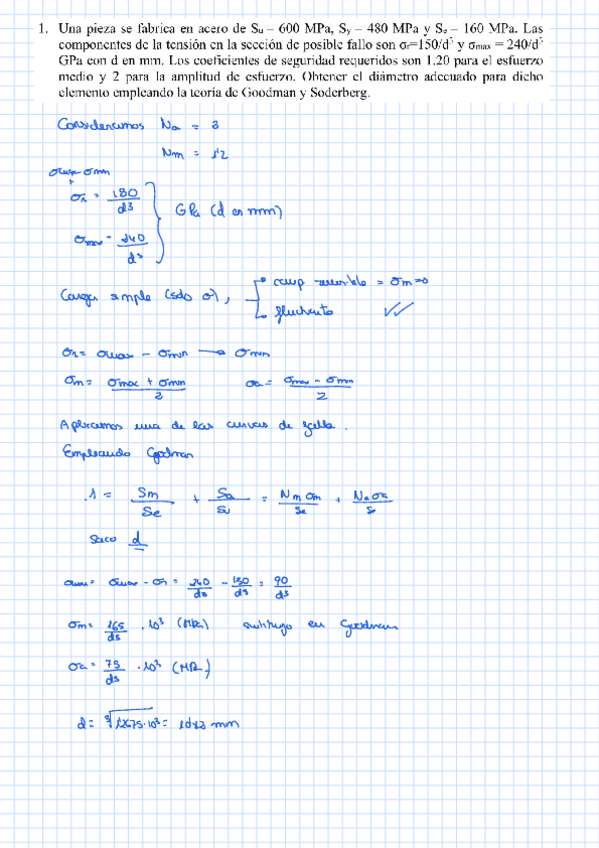 1. Una pieza se fabrica en acero de Su = 600 MPa, Sy = 480 MPa y Se = 160 MPa. Las
componentes de la tensión en la sección de posible fallo son σr=150/d³ y σmax = 240/d³
GPa con d en mm. Los coeficientes de seguridad requeridos son 1.20 para el esfuerzo
medio y 2 para la amplitud de esfuerzo. Obtener el diámetro adecuado para dicho
elemento empleando la teoría de Goodman y Soderberg.
Consideramos Na = 2
Nm = 1'2
σmax - σmin
σr = 150/d3
GPa (d en mm)
σmax = 240/d3
Carga simple (sólo σ),
comp reversible = σm=0
fluctuante
σr = σmax - σmin → σmin
σm = (σmax + σmin)/2 σa = (σmax - σmin)/2
Aplicamos una de las curvas de falla.
Empleando Goodman
1 = Sm/Se + Sa/Su = Nm σm/Se + Na σa
Saco d
σmax - σr = 240/d3 - 150/d3 = 90/d3
σm = 165/d3 · 10³ (MPa) sustituyo en Goodman
σa = 75/d3 · 10³ (MPa)
d = mm